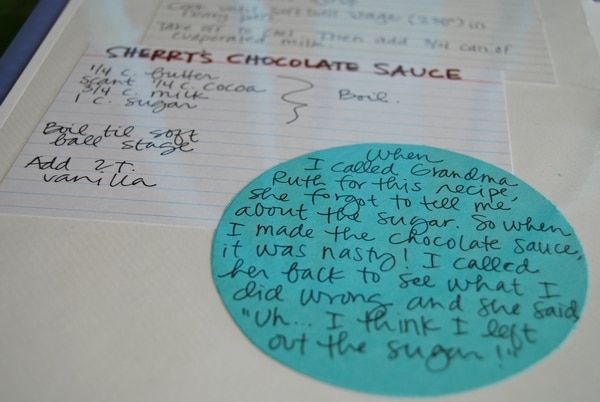 Cook until soft ball stage (238°) in
heavy pan.
Take off to cool. Then add 3/4 can of
evaporated milk
SHERRY'S CHOCOLATE SAUCE
1/4 c. butter
scant 1/4 c. cocoa
3/4 c. milk
1 c. sugar
Boil.
Boil til soft
ball stage
Add 2 T.
vanilla
When
I called Grandma
Ruth for this recipe,
she forgot to tell me
about the sugar. So when
I made the chocolate sauce,
it was nasty! I called
her back to see what I
did wrong and she said,
"Uh... I think I left
out the sugar!"